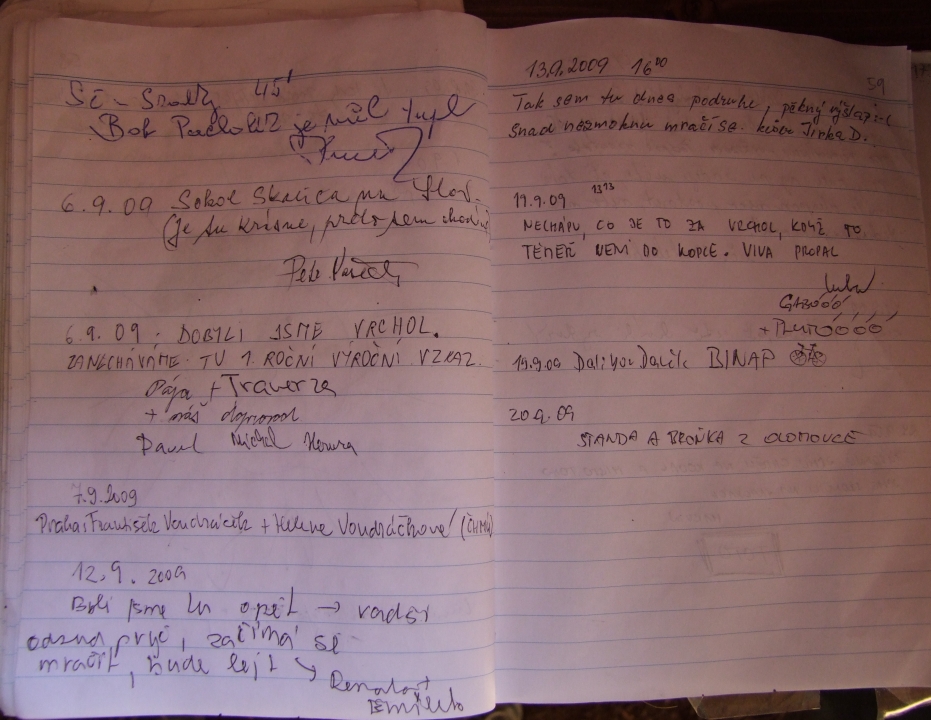 45'
je
6.9.09 Sokol Skalica na Slov.
(je tu krásne, preto sem chodím)
6.9.09. DOBYLI JSME VRCHOL.
ZANECHÁVÁME TU 1. ROČNÍ VÝROČNÍ VZKAZ
Pája + Traverza
+ náš doprovod
Pavel Michal Honza
7.9.2009
Praha: František Vondráček + Helena Vondráčková (ČHMÚ)
12.9.2009
Byli jsme tu opět → radši
odsud pryč, začíná se
mračit, bude lejt
13.9.2009 16⁰⁰
59
Tak sem tu dnes podruhé, pěkný výšlap :-(
snad nezmoknu mračí se. Jirka D.
19.9.09 13¹³
NECHÁPU, CO JE TO ZA VRCHOL, KDYŽ TO
TÉMĚŘ NENÍ DO KOPCE. VIVA PROPAL
GABÓÓÓ
+ PLUTÓÓÓÓ
19.9.09 Dalibor BINAP
20.9.09
STANDA A BROŇKA Z OLOMOUCE